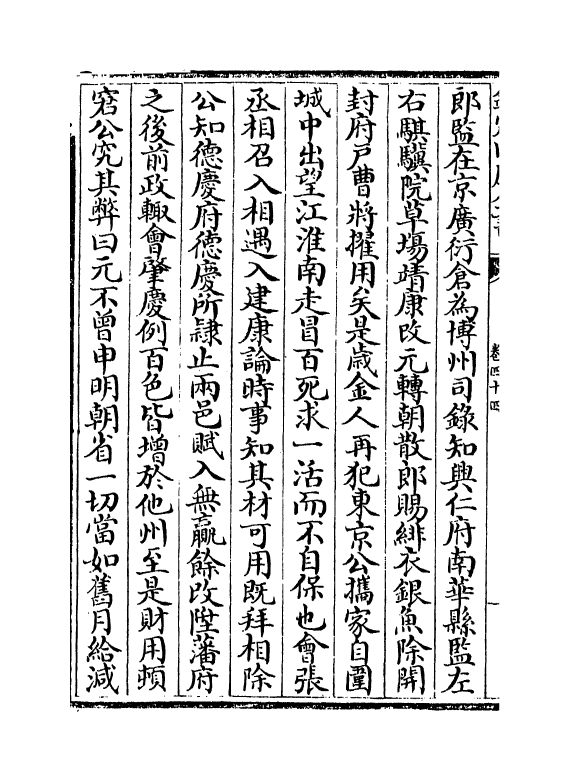 卷四十四
郎監在京廣衍倉為博州司錄知興仁府南華縣監左
右騏驥院草場靖康改元轉朝散郎賜緋衣銀魚除開
封府戸曹將擢用矣是歳金人再犯東京公攜家自圍
城中出望江淮南走冒百死求一活而不自保也會張
丞相召入相遇入建康論時事知其材可用既拜相除
公知德慶府德慶所隷止兩邑賦入無贏餘改陞藩府
之後前政輙會肇慶例百色皆增於他州至是財用頓
窘公究其弊曰元不曾申明朝省一切當如舊月給減